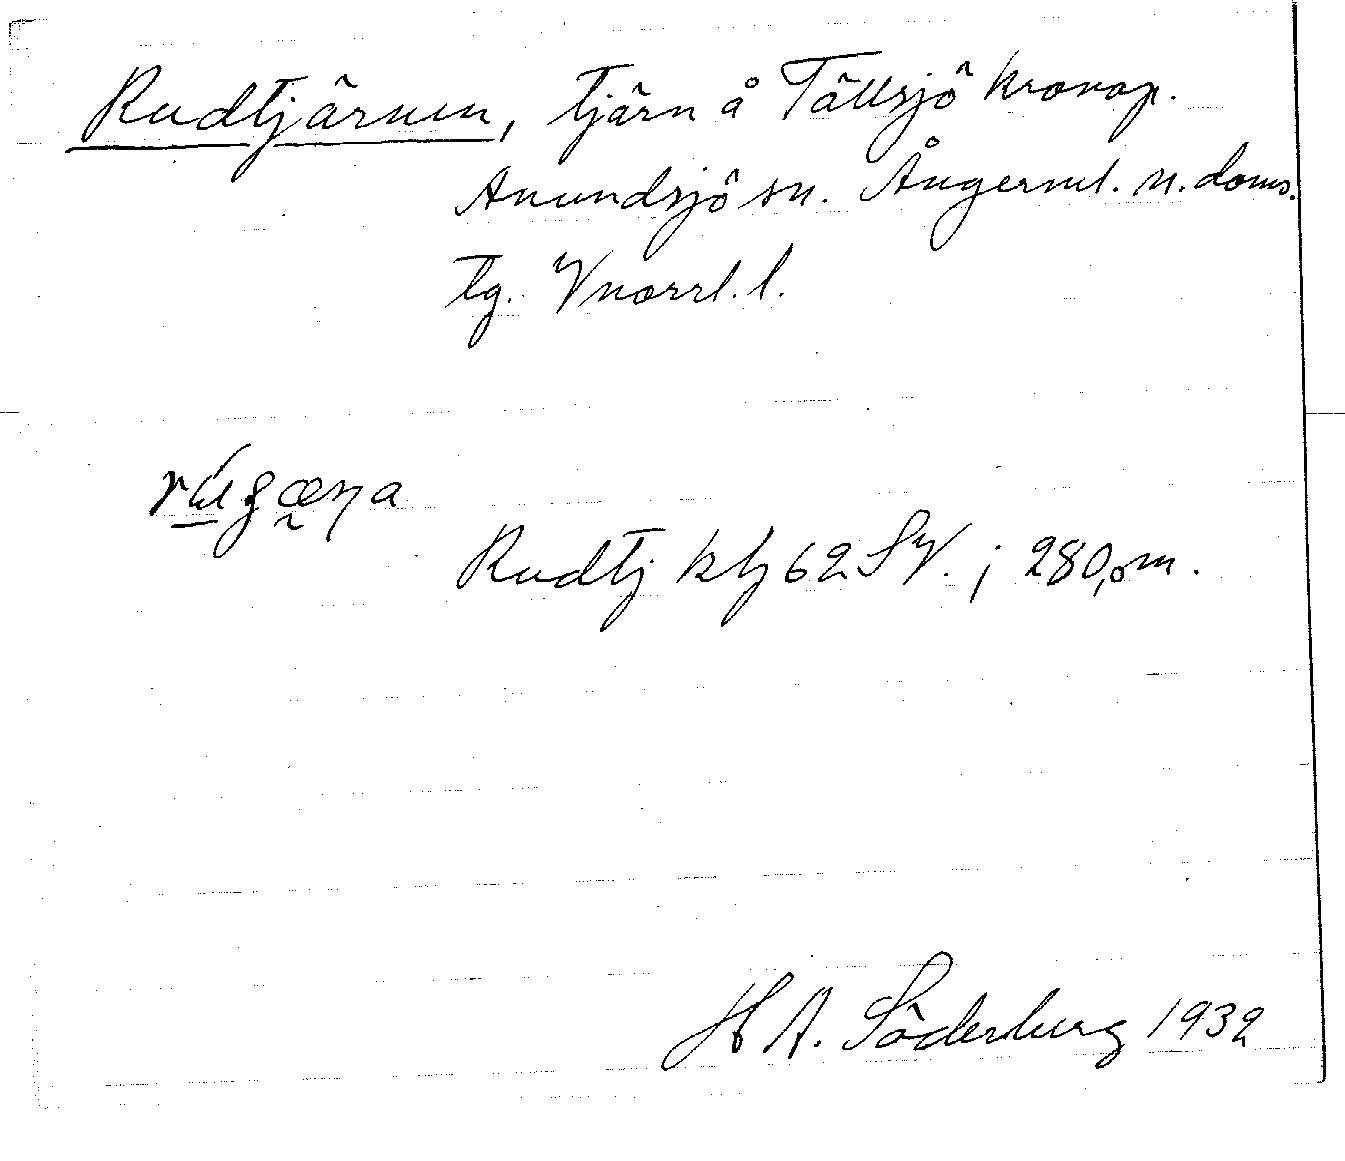 Rudtjärnen, tjärn å Tällsjö kronop.
Anundsjö sn. Ångerml. n. doms.
tg. Vnorrl. l.
Rudtj k bj 62 SV. ; 280,0 m.
H A. Söderberg 1932